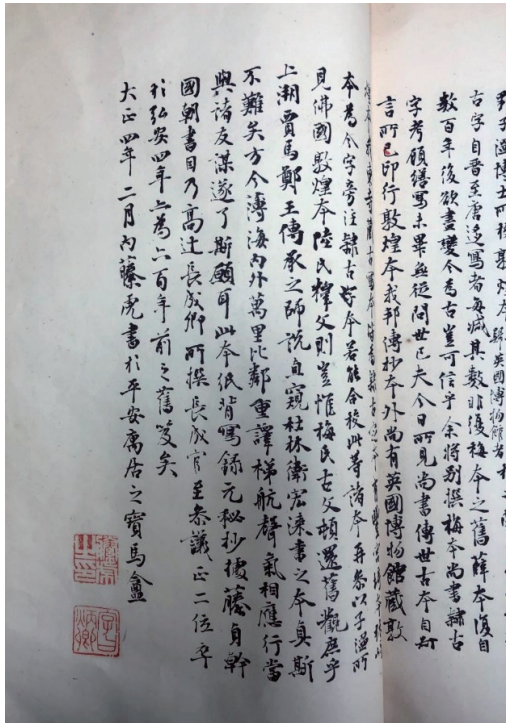 博士所
歸英國博物館者
古字自晉至唐迻寫者每減其數非復梅本之舊薛本復自
數百年後欲盡變今為古豈可信乎余將別撰梅本尚書隸古
字考顧繕寫未畢無從問世已夫今日所見尚書傳世古本自
言所已印行敦煌本我邦傳抄本外尚有英國博物館藏敦
本為今字旁注隸古等本若能合校此等諸本再參以子溫所
見佛國敦煌本陸氏釋文則豈惟梅氏古文頓還舊觀庶乎
上溯賈馬鄭王傳承之師說直窺杜林衛宏漆書之本真斯
不難矣方今溥海內外萬里比鄰重譯梯航聲氣相應行當
與諸友謀遂了斯願耳此本紙背寫錄元秘抄據藤貞幹
國朝書目乃高辻長成卿所撰長成官至參議正二位卒
於弘安四年亦為六百年前之舊笈矣
大正四年二月內藤虎書於平安寓居之寶馬盦
藤虎之印
字曰炳卿